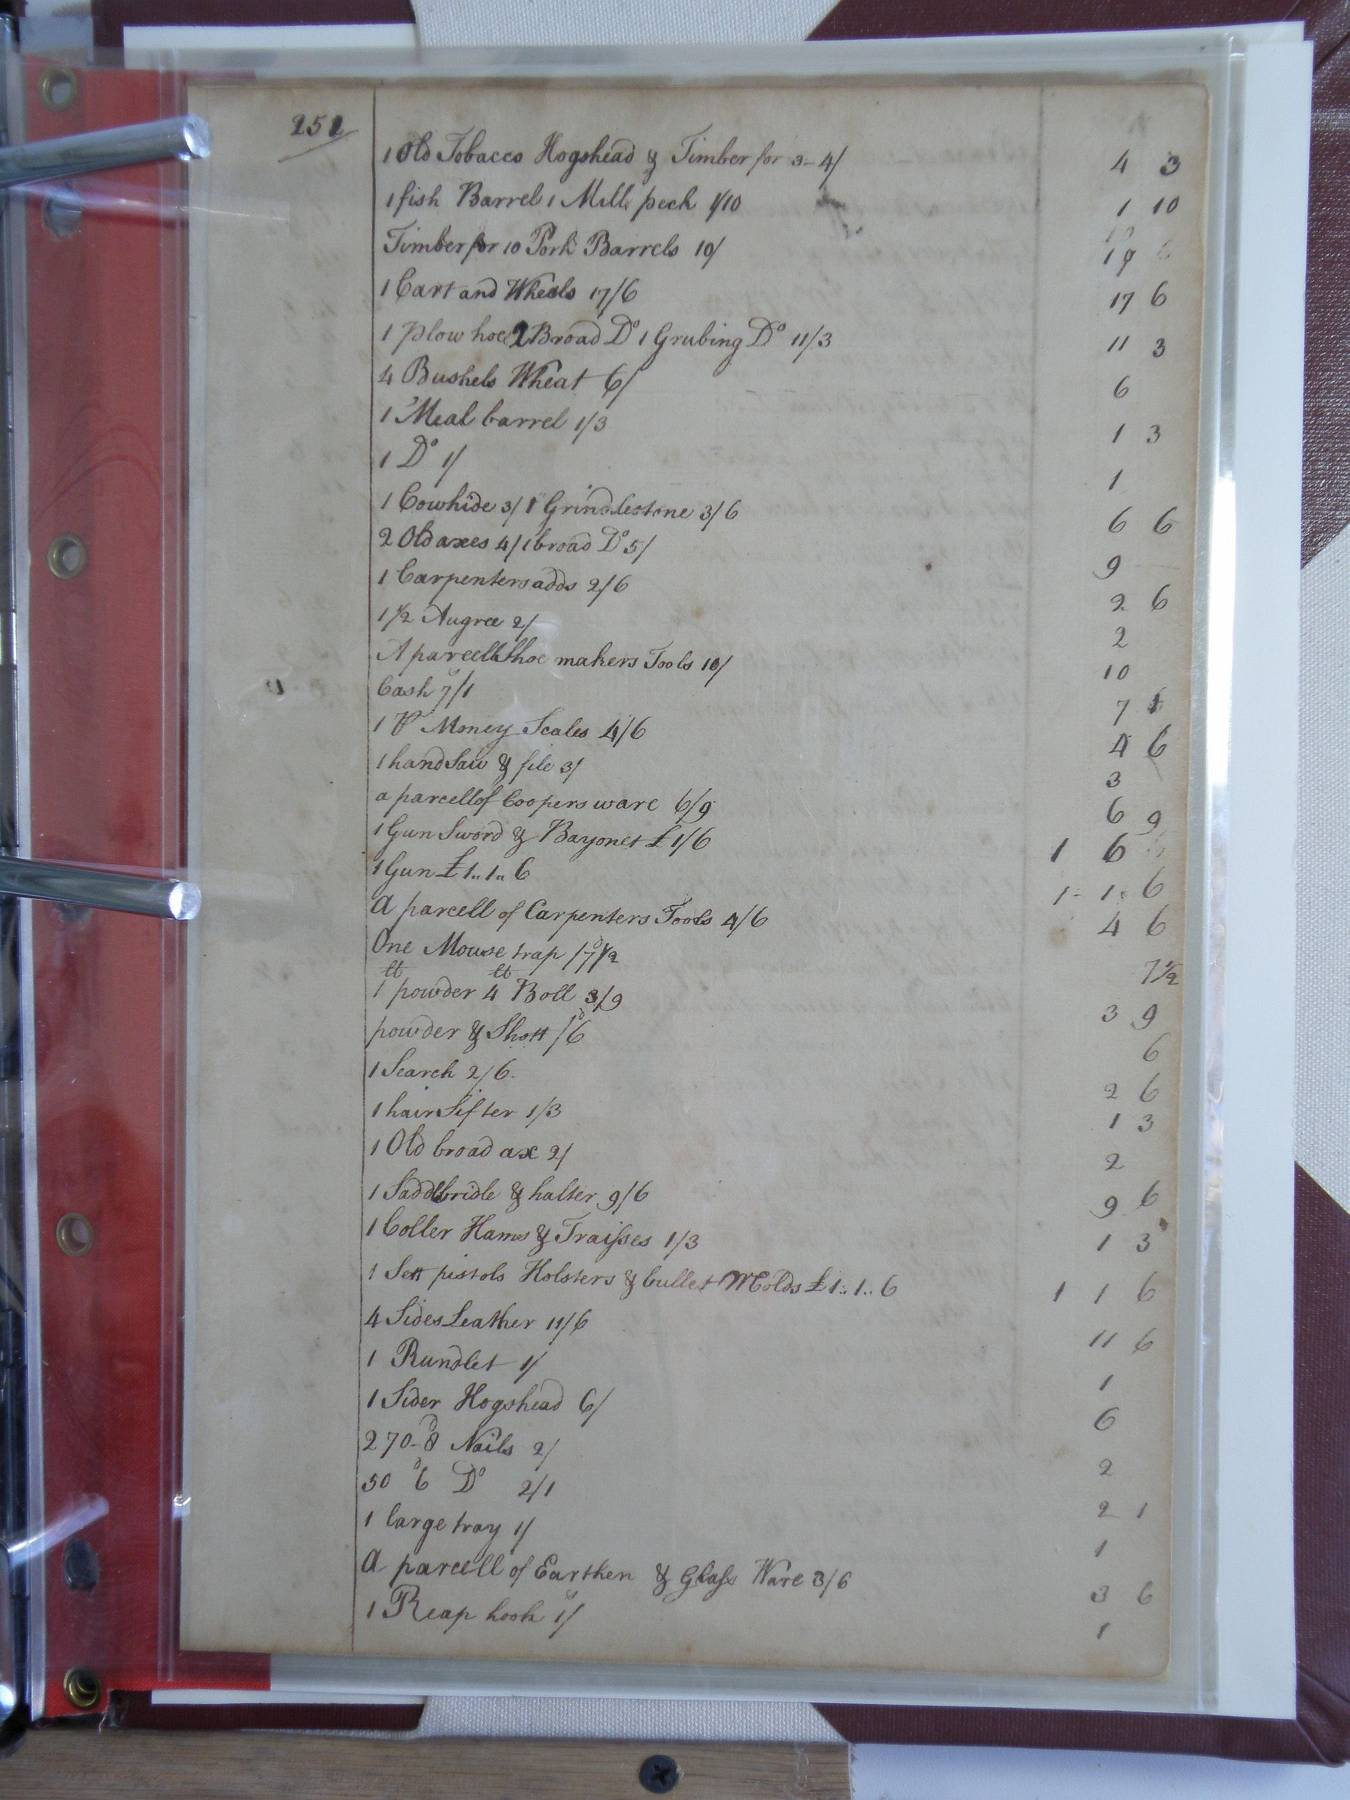 252
1 Old Tobacco Hogshead & Timber for 3-4/ 4 3
1 fish Barrel 1 Mill peck 1/10 1 10
Timber for 10 Pork Barrels 10/ 10
1 Cart and Wheels 17/6 17 6
1 plow hoe 2 Broad Do 1 Grubing Do 11/3 11 3
4 Bushels Wheat 6/ 6
1 Meal barrel 1/3 1 3
1 Do 1/ 1
1 Cowhide 3/ 1 Grindlestone 3/6 6 6
2 Old axes 4/ 1 broad Do 5/ 9
1 Carpenters adds 2/6 2 6
1 1/2 Augree 2/ 2
A parcell Shoe makers Tools 10/ 10
Cash 7/1 7 1
1 Pr Money Scales 4/6 4 6
1 hand Saw & file 3/ 3
a parcell of Coopers ware 6/9 6 9
1 Gun Sword & Bayonet £1/6 1 6
1 Gun £1..1..6 1 - 1. 6
A parcell of Carpenters Tools 4/6 4 6
One Mouse trap /7d 1/2 7 1/2
1 lt powder 4 lt Boll 3/9 3 9
powder & Shott /6d 6
1 Search 2/6 2 6
1 hair Sifter 1/3 1 3
1 Old broad ax 2/ 2
1 Saddlbridle & halter 9/6 9 6
1 Coller Hams & Traisses 1/3 1 3
1 Sett pistols Holsters & bullet Molds £1..1..6 1 1 6
4 Sides Leather 11/6 11 6
1 Rundlet 1/ 1
1 Sider Hogshead 6/ 6
270-8d Nails 2/ 2
50 6d Do 2/1 2 1
1 large tray 1/ 1
A parcell of Earthen & Glass Ware 3/6 3 6
1 Reap hook 1/ 1